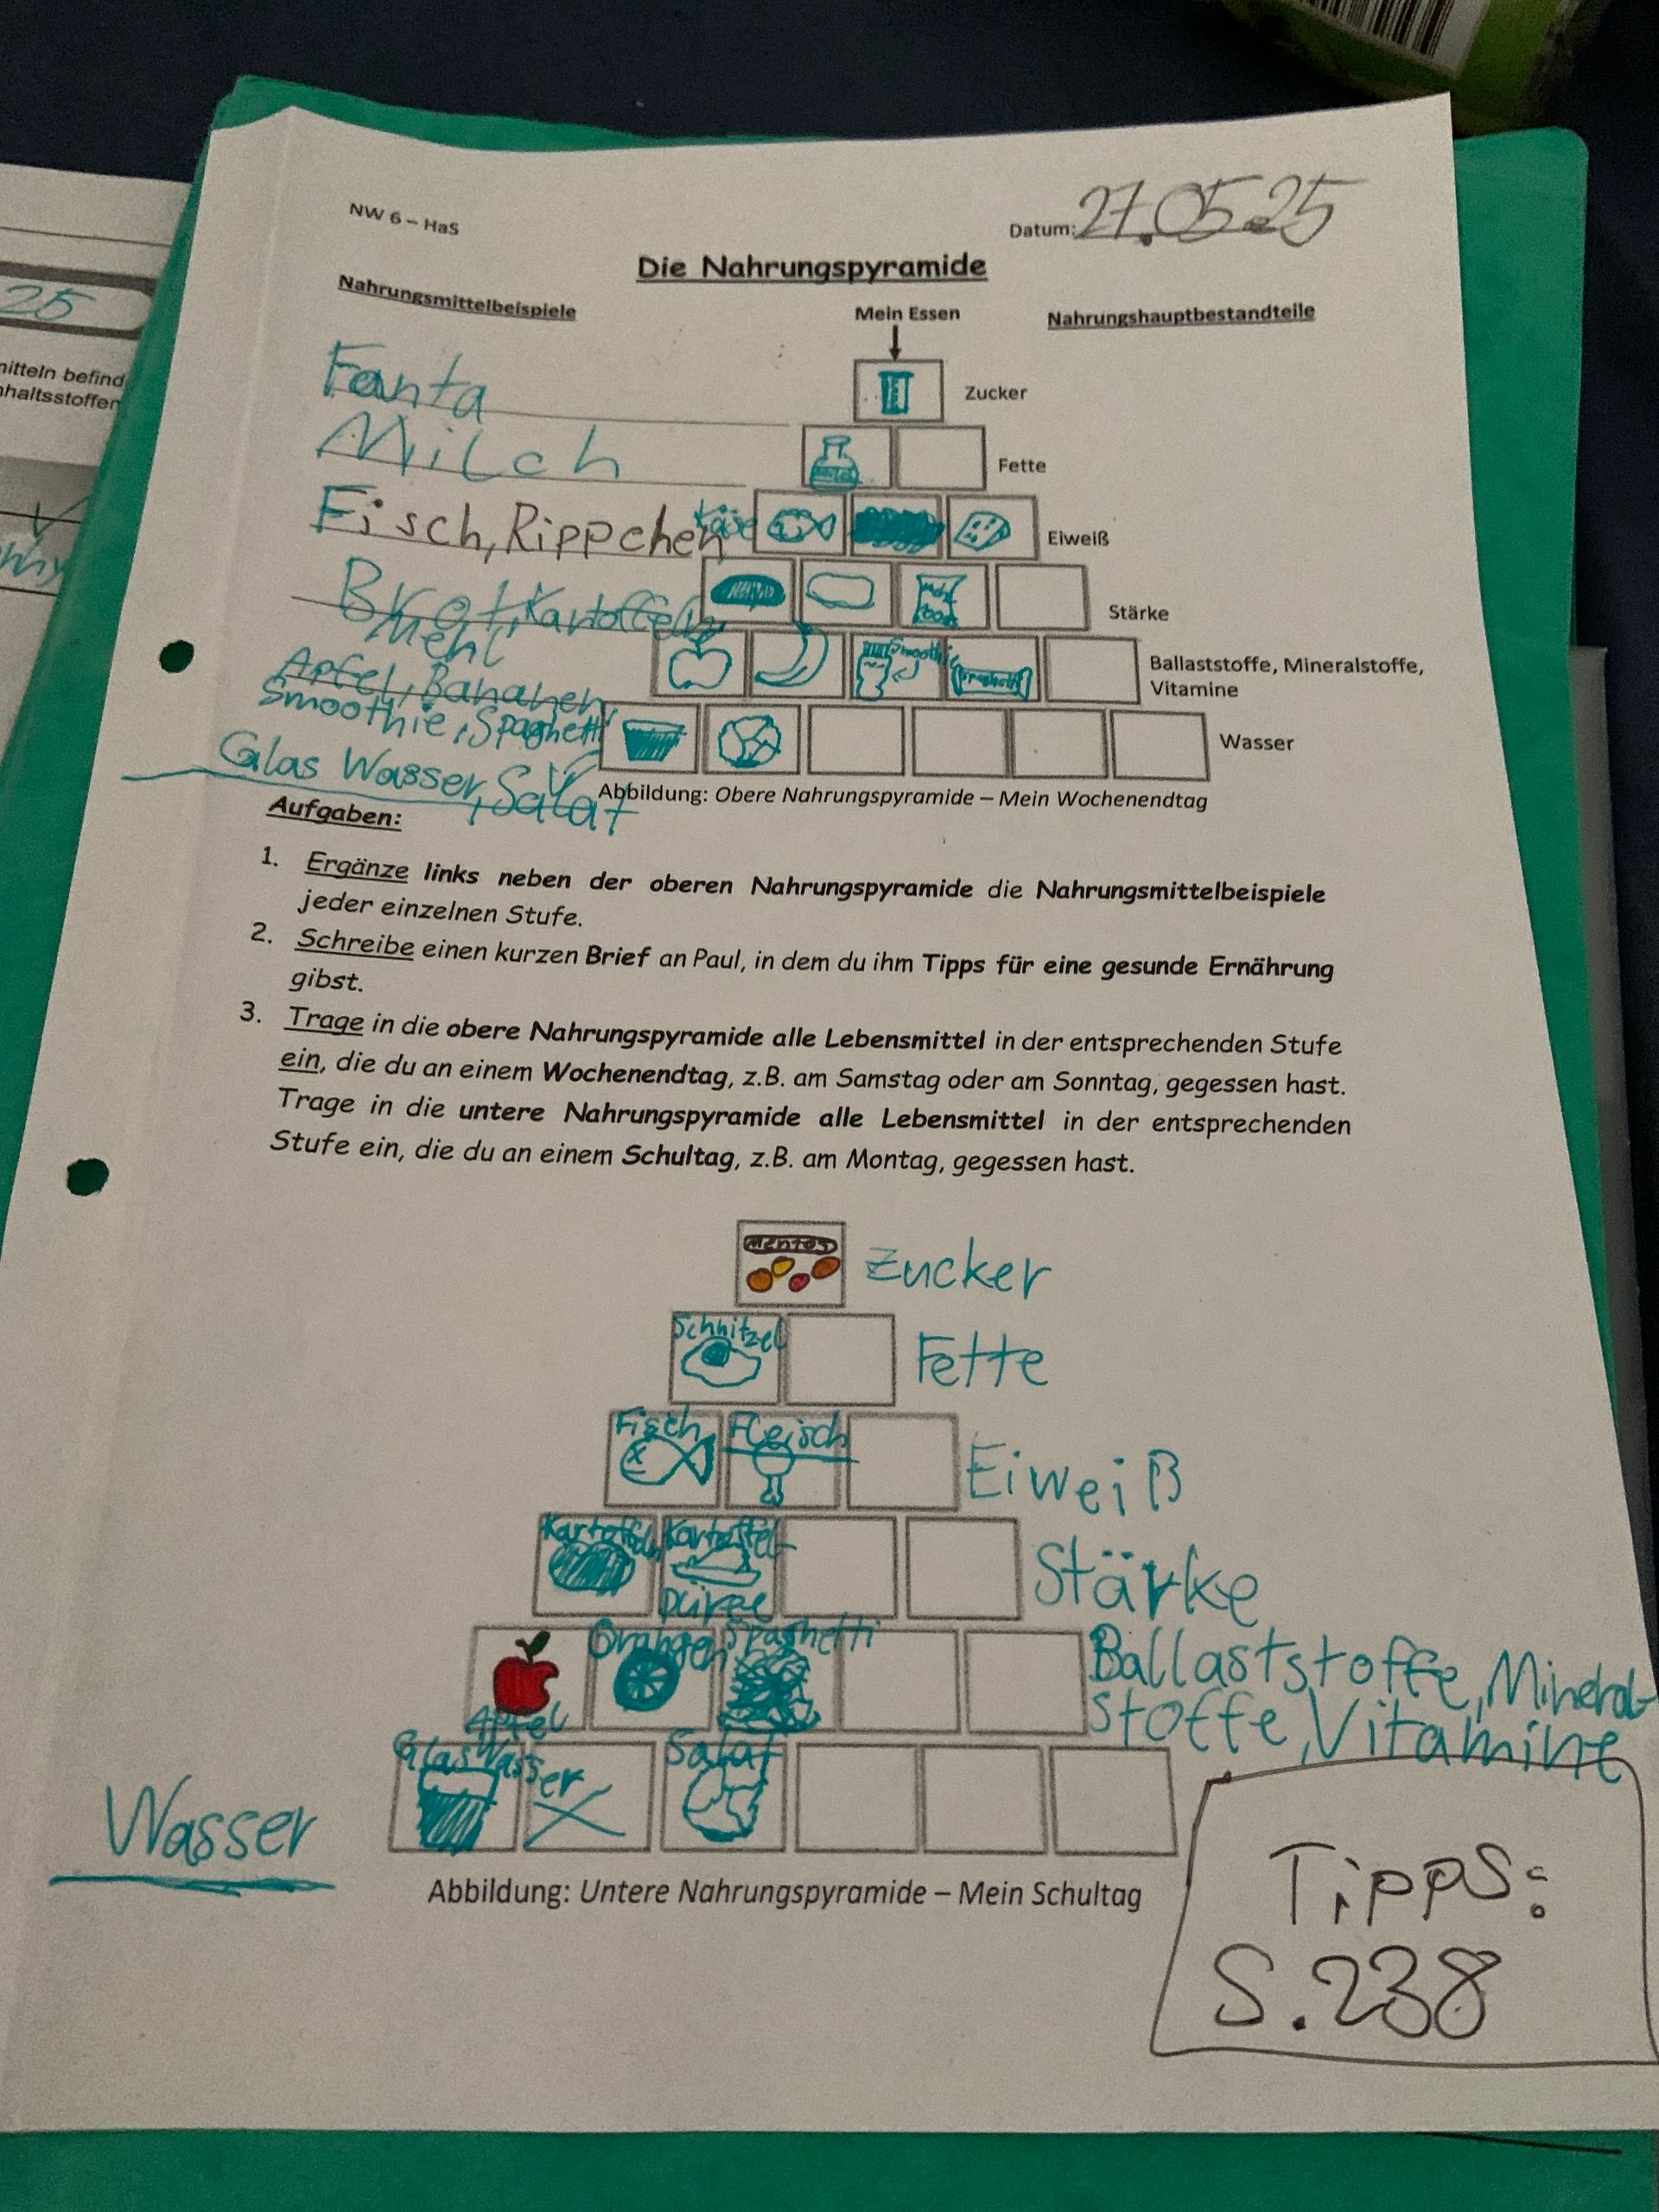 25
nitteln befind
nhaltsstoffen
NW 6 – HaS
Datum: 27.05.25
Die Nahrungspyramide
Nahrungsmittelbeispiele
Mein Essen
Nahrungshauptbestandteile
Fanta
Zucker
Milch
Fette
Fisch, Rippchen Käse
Eiweiß
Brot, Kartoffeln,
Mehl
Stärke
Apfel, Bananen,
Smoothie, Spaghetti
Smoothie
Ballaststoffe, Mineralstoffe,
Vitamine
Glas Wasser, Salat
Wasser
Abbildung: Obere Nahrungspyramide – Mein Wochenendtag
Aufgaben:
1. Ergänze links neben der oberen Nahrungspyramide die Nahrungsmittelbeispiele
jeder einzelnen Stufe.
2. Schreibe einen kurzen Brief an Paul, in dem du ihm Tipps für eine gesunde Ernährung
gibst.
3. Trage in die obere Nahrungspyramide alle Lebensmittel in der entsprechenden Stufe
ein, die du an einem Wochenendtag, z.B. am Samstag oder am Sonntag, gegessen hast.
Trage in die untere Nahrungspyramide alle Lebensmittel in der entsprechenden
Stufe ein, die du an einem Schultag, z.B. am Montag, gegessen hast.
mentos
Zucker
Schnitzel
Fette
Fisch Fleisch
Eiweiß
Kartoffeln Kartoffel-
püree
Stärke
Apfel Orangen Spaghetti
Ballaststoffe, Mineral-
stoffe, Vitamine
Glas Wasser Salat
Wasser
Abbildung: Untere Nahrungspyramide – Mein Schultag
Tipps:
S. 238